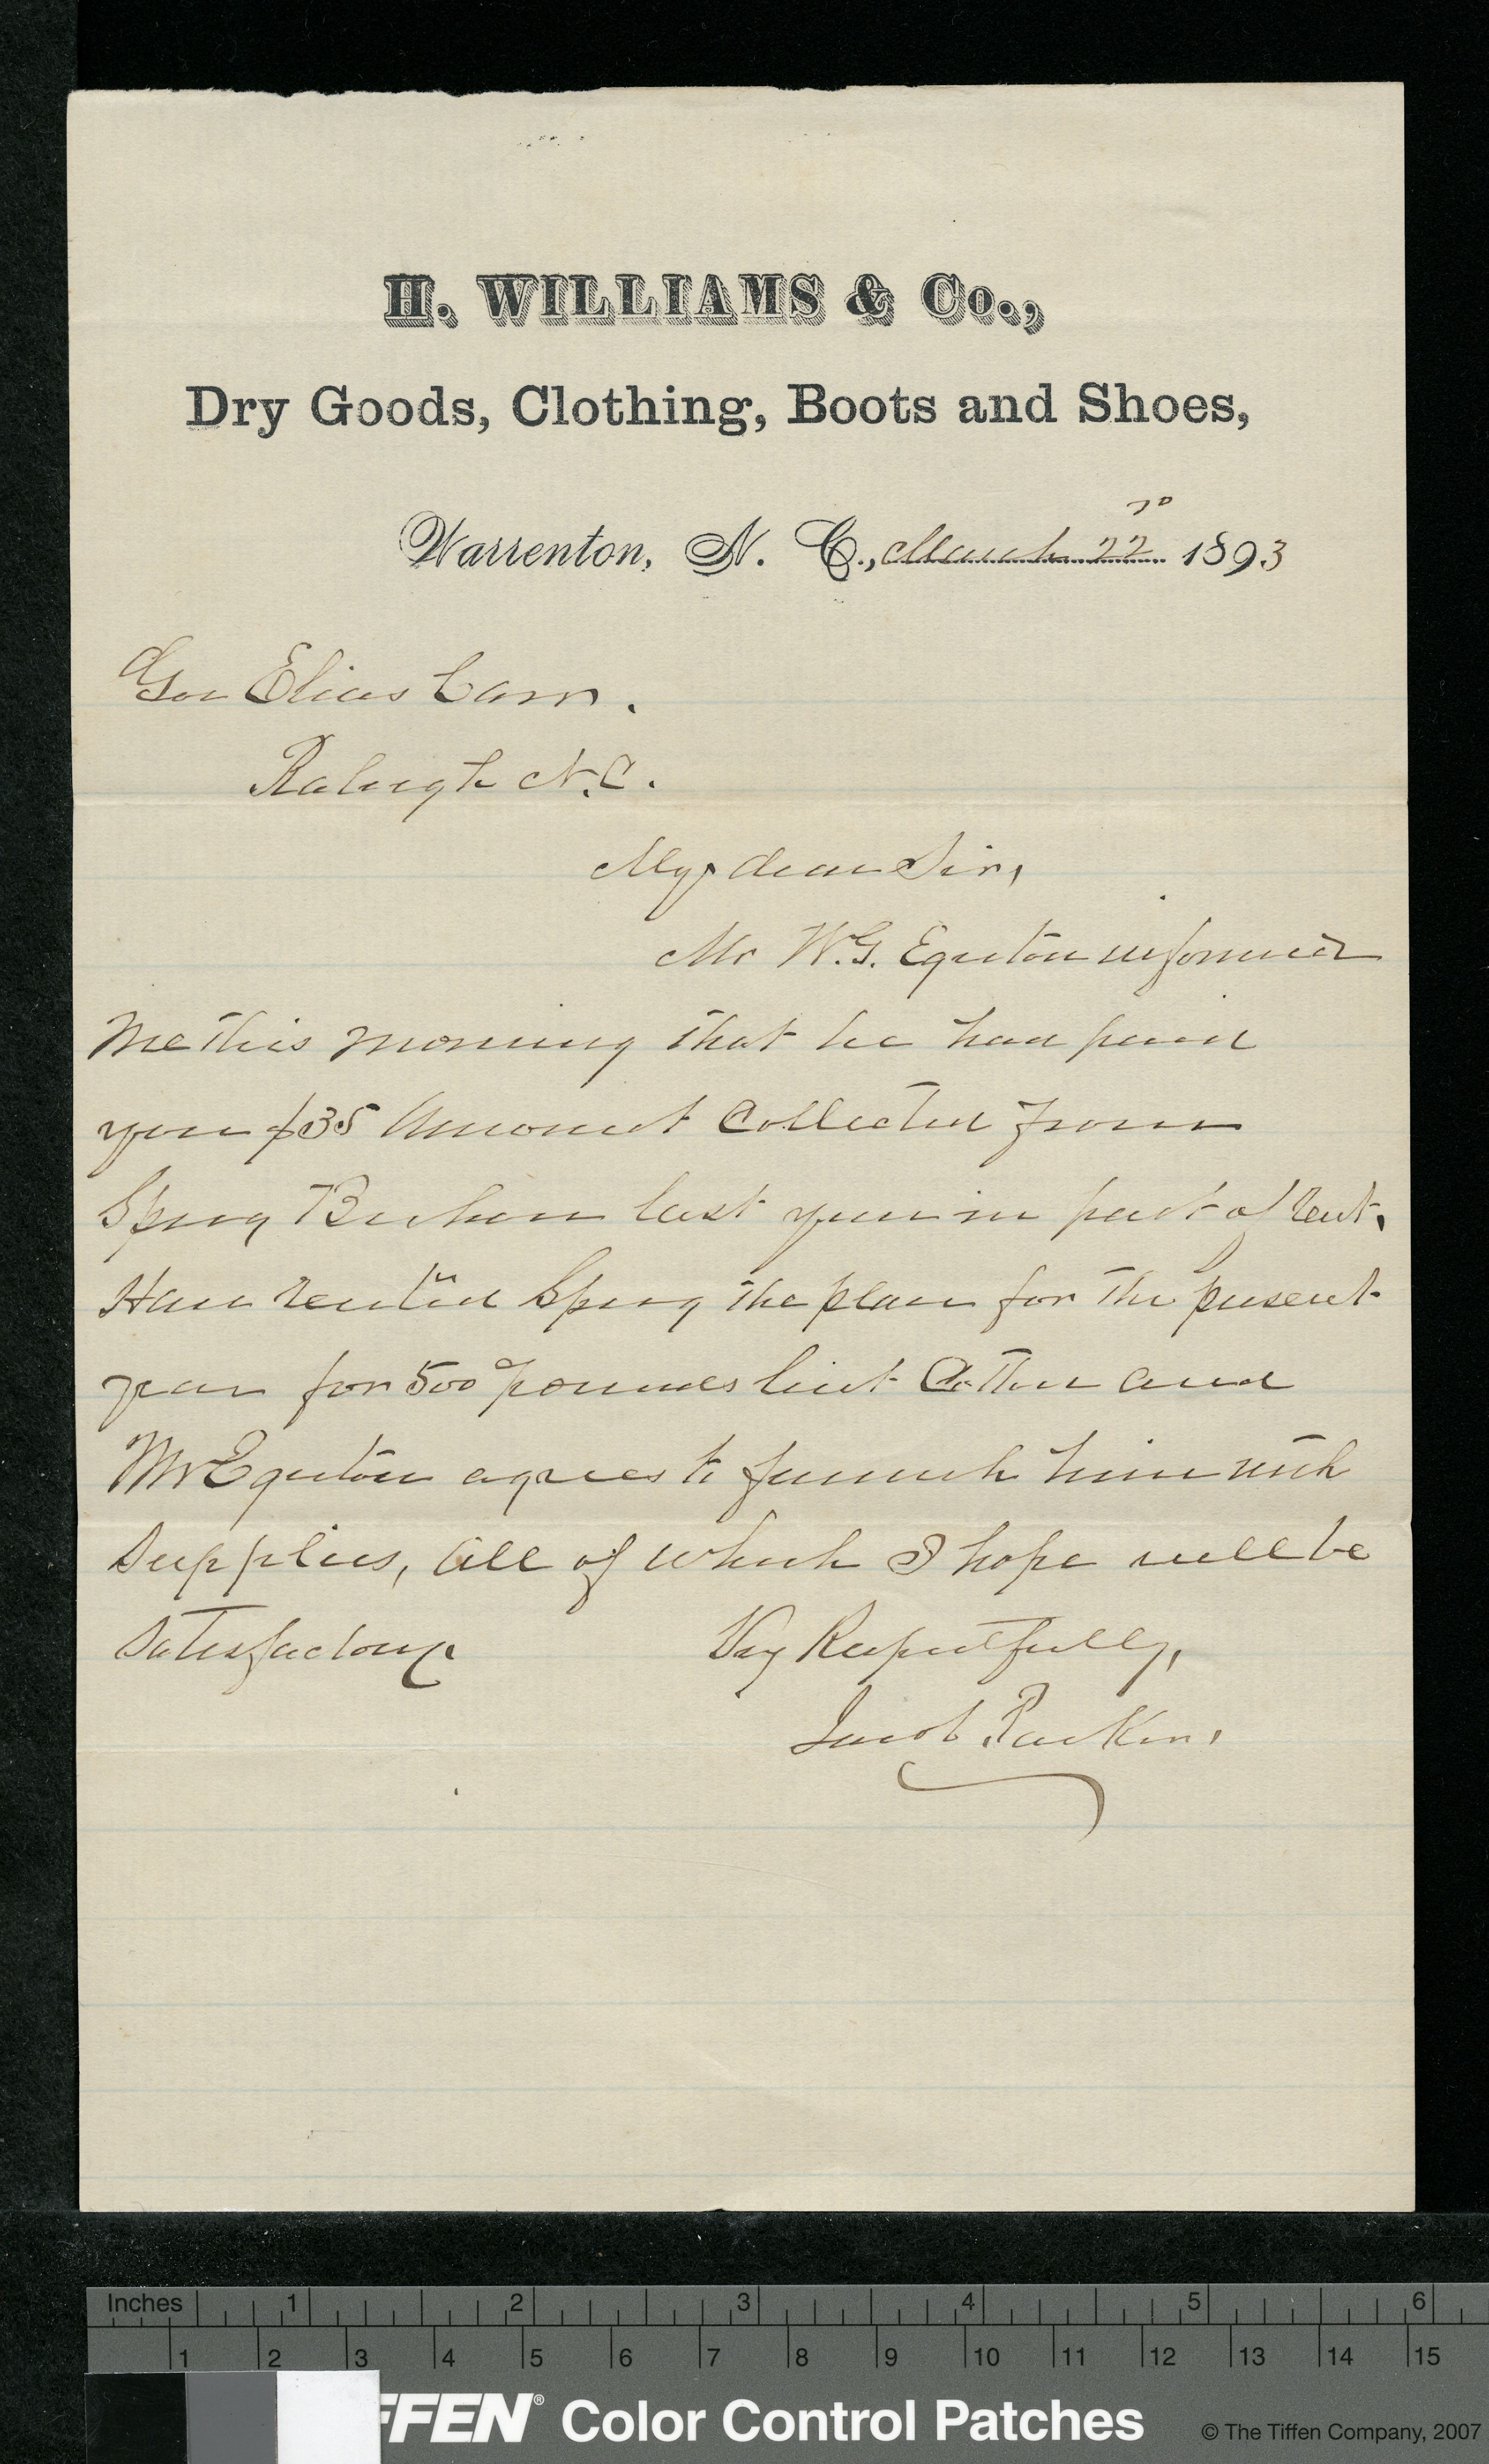 H. WILLIAMS & Co.,
Dry Goods, Clothing, Boots and Shoes,
Warrenton, N. C., March 22nd 1893
Gov Elias Carr.
Raleigh N.C.
My dear Sir,
Mr W.G. Egerton informed
me this morning that he had paid
you $35 Amount Collected from
last year in part of rent.
Have rented the place for the present
year for 500 pounds lint Cotton and
Mr Egerton agrees to furnish him with
Supplies, all of which I hope will be
Satisfactory. Very Respectfully,
Jacob Parker.
Inches 1 2 3 4 5 6
1 2 3 4 5 6 7 8 9 10 11 12 13 14 15
FFEN® Color Control Patches © The Tiffen Company, 2007